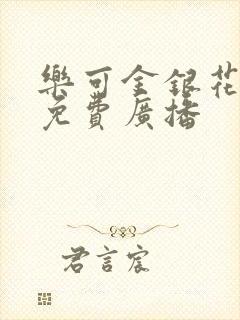 樂可金銀花
免費廣播
君言宸